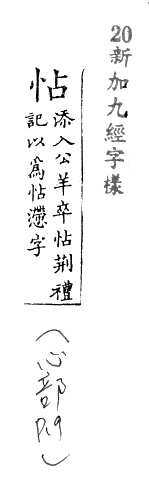 20新加九經字樣
怗 添入公羊卒怗荆禮
記以爲怗懘字
(心部 P.9)